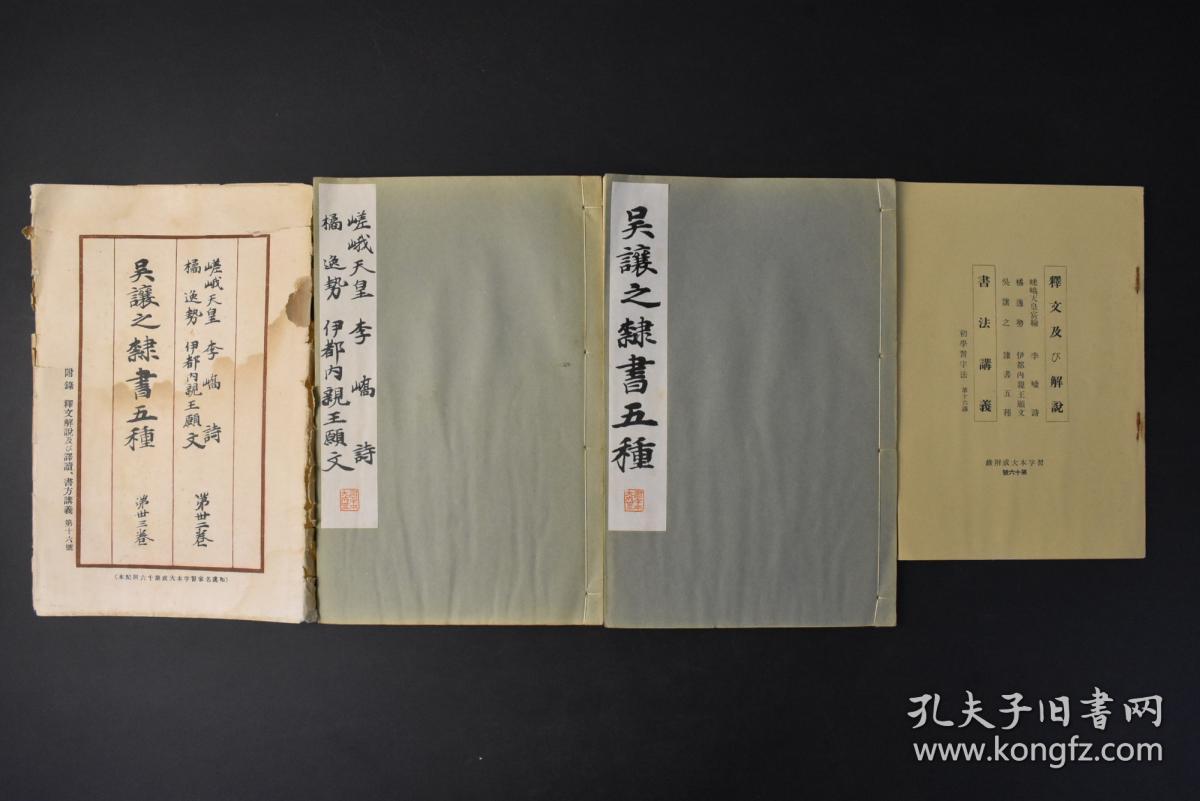 嵯峨天皇 李嶠詩
橘逸勢 伊都内親王願文
第卅二卷
吳讓之隸書五種
第卅三卷
附錄 釋文解說及び譯讀、書方講義 第十六號
(和漢名家習字本大成第十六回配本)
嵯峨天皇 李嶠詩
橘逸勢 伊都内親王願文
吳讓之隸書五種
釋文及び解說
嵯峨天皇宸翰 李嶠詩
橘逸勢 伊都内親王願文
吳讓之 隸書五種
書法講義
初學習字法 第十六講
習字本大成附錄
第十六號
孔夫子旧书网
www.kongfz.com